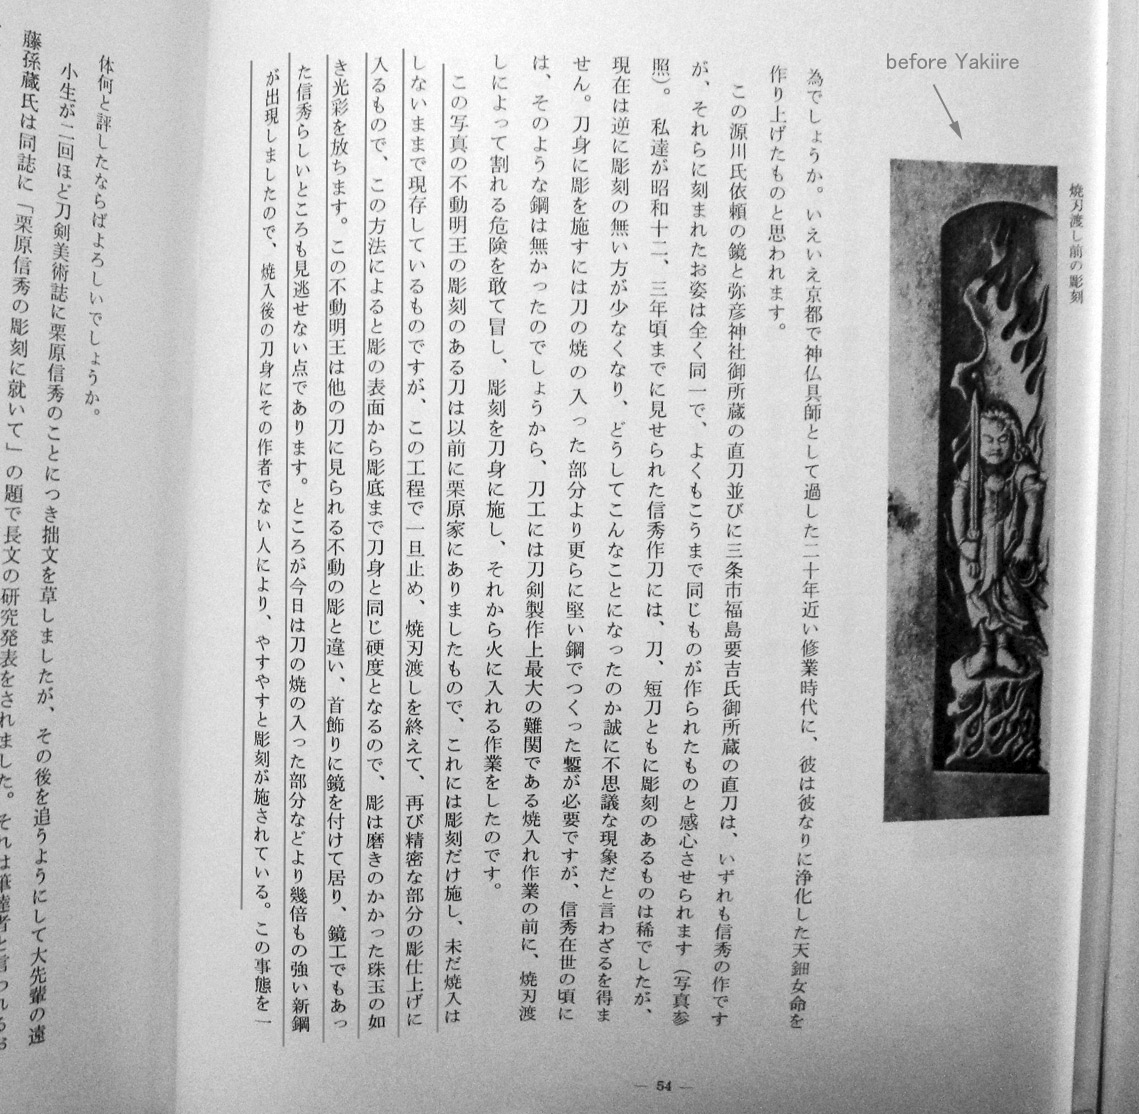 before Yakiire
焼刃渡し前の彫刻
為でしょうか。いえいえ京都で神仏具師として過した二十年近い修業時代に、彼は彼なりに浄化した天鈿女命を
作り上げたものと思われます。
この源川氏依頼の鏡と弥彦神社御所蔵の直刀並びに三条市福島要吉氏御所蔵の直刀は、いずれも信秀の作です
が、それらに刻まれたお姿は全く同一で、よくもこうまで同じものが作られたものと感心させられます（写真参
照）。私達が昭和十二、三年頃までに見せられた信秀作刀には、刀、短刀ともに彫刻のあるものは稀でしたが、
現在は逆に彫刻の無い方が少なくなり、どうしてこんなことになったのか誠に不思議な現象だと言わざるを得ま
せん。刀身に彫を施すには刀の焼の入った部分より更らに堅い鋼でつくった鏨が必要ですが、信秀在世の頃に
は、そのような鋼は無かったのでしょうから、刀工には刀剣製作上最大の難関である焼入れ作業の前に、焼刃渡
しによって割れる危険を敢て冒し、彫刻を刀身に施し、それから火に入れる作業をしたのです。
この写真の不動明王の彫刻のある刀は以前に栗原家にありましたもので、これには彫刻だけ施し、未だ焼入は
しないままで現存しているものですが、この工程で一旦止め、焼刃渡しを終えて、再び精密な部分の彫仕上げに
入るもので、この方法によると彫の表面から彫底まで刀身と同じ硬度となるので、彫は磨きのかかった珠玉の如
き光彩を放ちます。この不動明王は他の刀に見られる不動の彫と違い、首飾りに鏡を付けて居り、鏡工でもあっ
た信秀らしいところも見逃せない点であります。ところが今日は刀の焼の入った部分などより幾倍もの強い新鋼
が出現しましたので、焼入後の刀身にその作者でない人により、やすやすと彫刻が施されている。この事態を一
— 54 —
体何と評したならばよろしいでしょうか。
小生が二回ほど刀剣美術誌に栗原信秀のことにつき拙文を草しましたが、その後を追うようにして大先輩の遠
藤孫蔵氏は同誌に「栗原信秀の彫刻に就いて」の題で長文の研究発表をされました。それは筆達者と言われるお